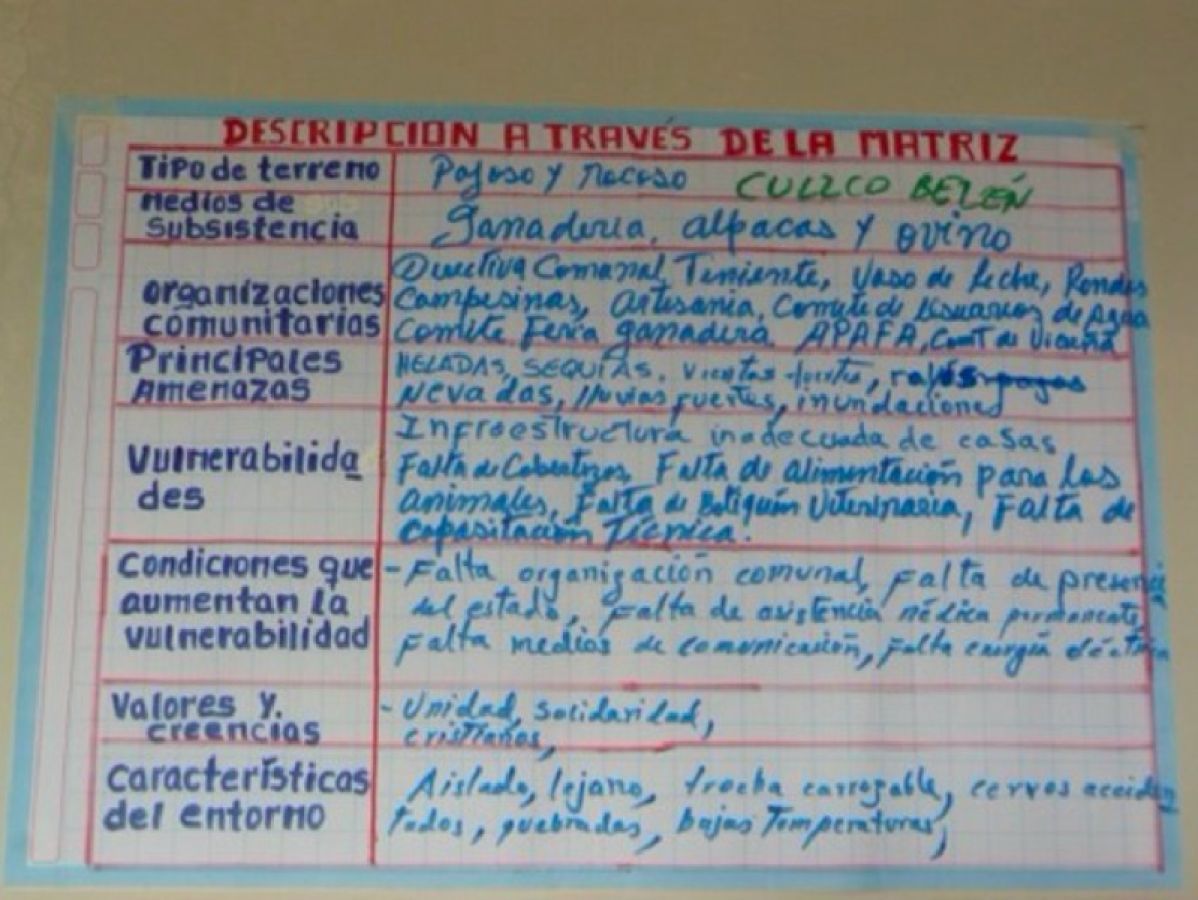 DESCRIPCION A TRAVÉS DE LA MATRIZ
Tipo de terreno
Pajoso y Rocoso CULLCO BELÉN
Medios de
Subsistencia
Ganaderia, alpacas y ovino
Organizaciones
comunitarias
Directiva Comunal, Teniente, Vaso de Leche, Rondas
Campesinas, Artesania, Comite de Usuarios de Agua
Comite Feria ganadera, APAFA, Comt de Vicuña
Principales
Amenazas
HELADAS, SEQUIAS, vientos fuertes, rayos
Nevadas, lluvias fuertes, inundaciones
Vulnerabilida
des
Infraestructura inadecuada de casas
Falta de Cobertizos, Falta de alimentación para los
animales, Falta de Botiquín Veterinaria, Falta de
Capasitación Técnica.
Condiciones que
aumentan la
vulnerabilidad
- Falta organización comunal, Falta de presencia
del estado, Falta de asistencia médica permanente,
Falta medios de comunicación, falta energía eléctrica
Valores y.
creencias
- Unidad, Solidaridad,
cristianos,
Características
del entorno
Aislado, lejano, trocha carrozable, cerros acciden
tados, quebradas, bajas Temperaturas,